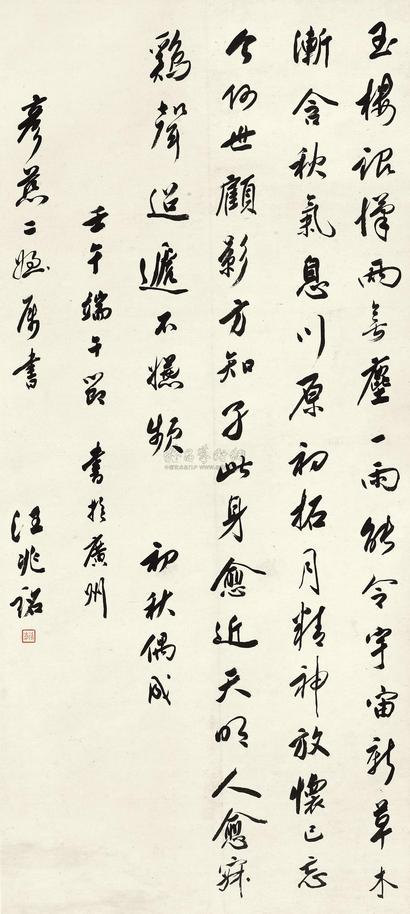 玉樓銀漢兩無塵一雨能令宇宙新草木
漸含秋氣息川原初拓月精神放懷已忘
今何世顧影方知子此身愈近天明人愈寐
鷄聲迢遞不嫌頻 初秋偶成
壬午端午節 書於廣州
彥慈二姪屬書 汪兆銘